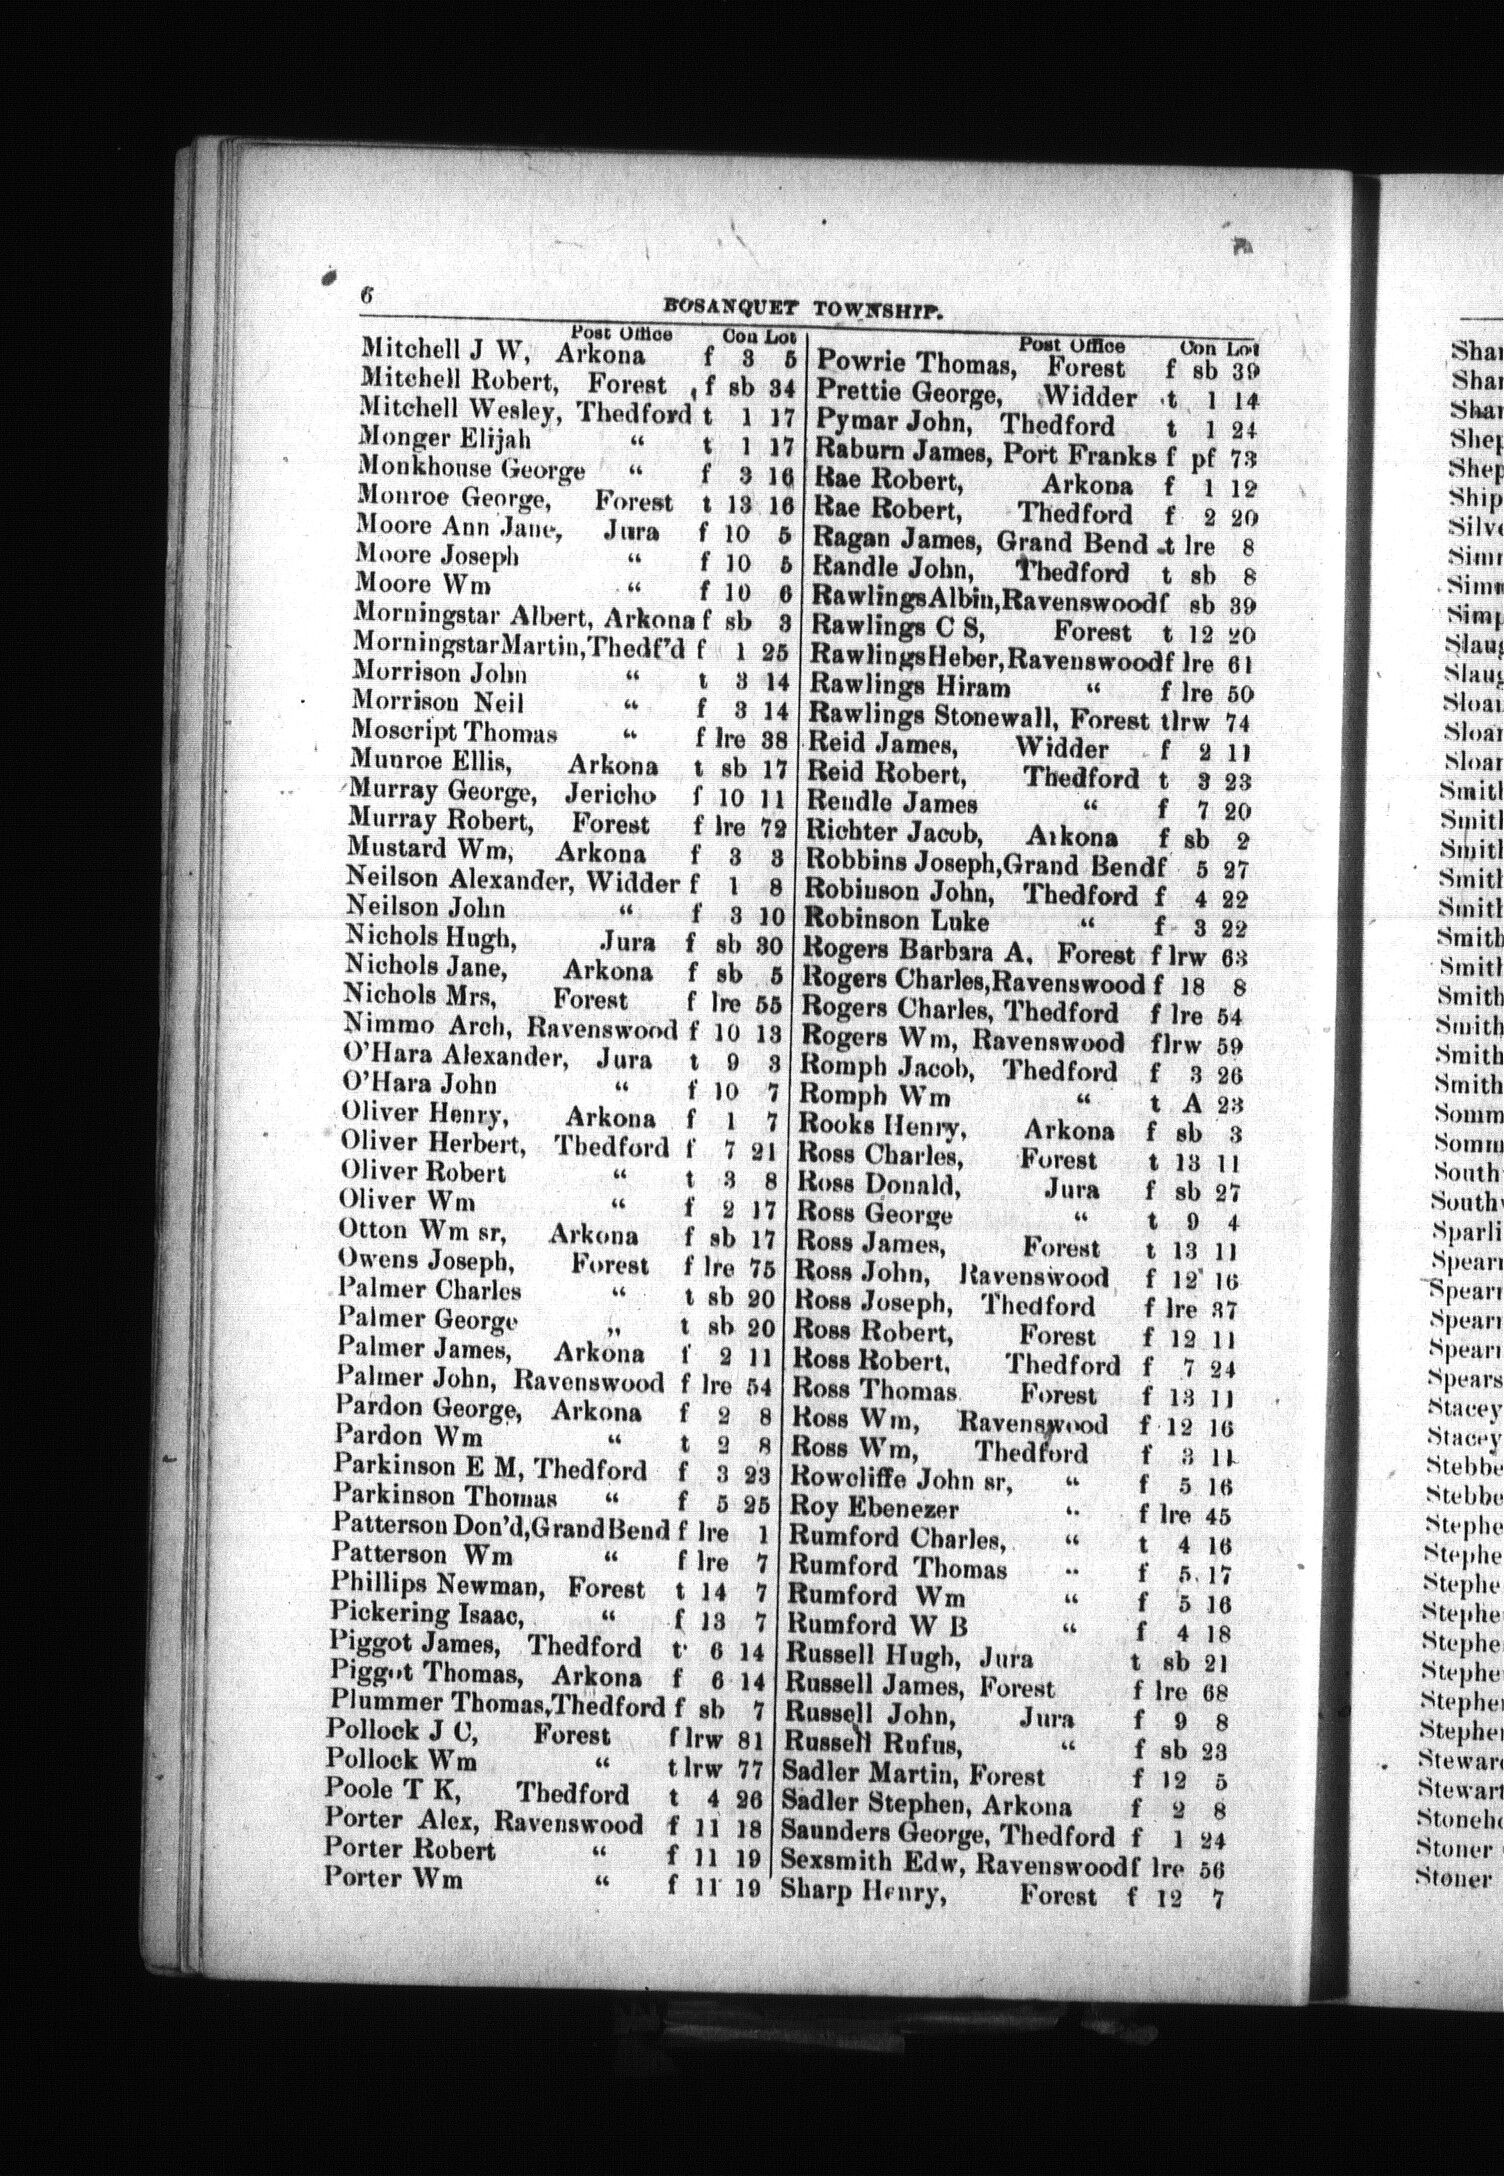 6
BOSANQUET TOWNSHIP.
Post Office Con Lot
Mitchell J W, Arkona f 3 5
Mitchell Robert, Forest f sb 34
Mitchell Wesley, Thedford t 1 17
Monger Elijah “ t 1 17
Monkhouse George “ f 3 16
Monroe George, Forest t 13 16
Moore Ann Jane, Jura f 10 5
Moore Joseph “ f 10 5
Moore Wm “ f 10 6
Morningstar Albert, Arkona f sb 3
Morningstar Martin, Thedf'd f 1 25
Morrison John “ t 3 14
Morrison Neil “ f 3 14
Moscript Thomas “ f lre 38
Munroe Ellis, Arkona t sb 17
Murray George, Jericho f 10 11
Murray Robert, Forest f lre 72
Mustard Wm, Arkona f 3 3
Neilson Alexander, Widder f 1 8
Neilson John “ f 3 10
Nichols Hugh, Jura f sb 30
Nichols Jane, Arkona f sb 5
Nichols Mrs, Forest f lre 55
Nimmo Arch, Ravenswood f 10 13
O'Hara Alexander, Jura t 9 3
O'Hara John “ f 10 7
Oliver Henry, Arkona f 1 7
Oliver Herbert, Thedford f 7 21
Oliver Robert “ t 3 8
Oliver Wm “ f 2 17
Otton Wm sr, Arkona f sb 17
Owens Joseph, Forest f lre 75
Palmer Charles “ t sb 20
Palmer George „ t sb 20
Palmer James, Arkona f 2 11
Palmer John, Ravenswood f lre 54
Pardon George, Arkona f 2 8
Pardon Wm “ t 2 8
Parkinson E M, Thedford f 3 23
Parkinson Thomas “ f 5 25
Patterson Don'd, Grand Bend f lre 1
Patterson Wm “ f lre 7
Phillips Newman, Forest t 14 7
Pickering Isaac, “ f 13 7
Piggot James, Thedford t 6 14
Piggot Thomas, Arkona f 6 14
Plummer Thomas, Thedford f sb 7
Pollock J C, Forest f lrw 81
Pollock Wm “ t lrw 77
Poole T K, Thedford t 4 26
Porter Alex, Ravenswood f 11 18
Porter Robert “ f 11 19
Porter Wm “ f 11 19
Post Office Con Lot
Powrie Thomas, Forest f sb 39
Prettie George, Widder t 1 14
Pymar John, Thedford t 1 24
Raburn James, Port Franks f pf 73
Rae Robert, Arkona f 1 12
Rae Robert, Thedford f 2 20
Ragan James, Grand Bend t lre 8
Randle John, Thedford t sb 8
Rawlings Albin, Ravenswood f sb 39
Rawlings C S, Forest t 12 20
Rawlings Heber, Ravenswood f lre 61
Rawlings Hiram “ f lre 50
Rawlings Stonewall, Forest t lrw 74
Reid James, Widder f 2 11
Reid Robert, Thedford t 3 23
Rendle James “ f 7 20
Richter Jacob, Arkona f sb 2
Robbins Joseph, Grand Bend f 5 27
Robinson John, Thedford f 4 22
Robinson Luke “ f 3 22
Rogers Barbara A, Forest f lrw 63
Rogers Charles, Ravenswood f 18 8
Rogers Charles, Thedford f lre 54
Rogers Wm, Ravenswood f lrw 59
Romph Jacob, Thedford f 3 26
Romph Wm “ t A 23
Rooks Henry, Arkona f sb 3
Ross Charles, Forest t 13 11
Ross Donald, Jura f sb 27
Ross George “ t 9 4
Ross James, Forest t 13 11
Ross John, Ravenswood f 12 16
Ross Joseph, Thedford f lre 37
Ross Robert, Forest f 12 11
Ross Robert, Thedford f 7 24
Ross Thomas Forest f 13 11
Ross Wm, Ravenswood f 12 16
Ross Wm, Thedford f 3 11
Rowcliffe John sr, “ f 5 16
Roy Ebenezer “ f lre 45
Rumford Charles, “ t 4 16
Rumford Thomas “ f 5 17
Rumford Wm “ f 5 16
Rumford W B “ f 4 18
Russell Hugh, Jura t sb 21
Russell James, Forest f lre 68
Russell John, Jura f 9 8
Russell Rufus, “ f sb 23
Sadler Martin, Forest f 12 5
Sadler Stephen, Arkona f 2 8
Saunders George, Thedford f 1 24
Sexsmith Edw, Ravenswood f lre 56
Sharp Henry, Forest f 12 7